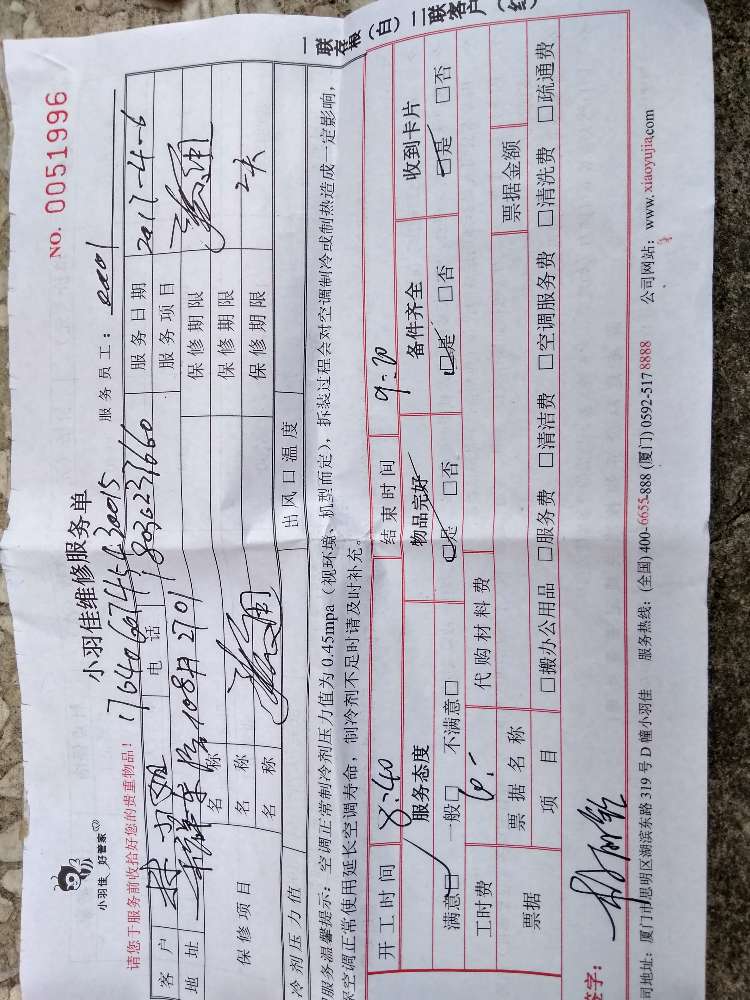 一联存根（白）二联客户（红）
NO. 0051996
小羽佳 好管家
小羽佳维修服务单
请您于服务前收拾好您的贵重物品！
服务员工：
客户
电话
服务日期 2017-4-6
地址 108号2701
服务项目
保修项目
名称 保修期限
名称 保修期限
名称 保修期限
冷剂压力值 出风口温度
服务温馨提示：空调正常制冷剂压力值为 0.45mpa（视环境、机型而定），拆装过程会对空调制冷或制热造成一定影响，
空调正常使用延长空调寿命，制冷剂不足时请及时补充。
开工时间 8:40 结束时间 9:20
服务态度 物品完好 备件齐全 收到卡片
满意□ 一般□ 不满意□ □是 □否 □是 □否 □是 □否
工时费 代购材料费
票据名称 票据金额
票据 项目 □搬办公用品 □服务费 □清洁费 □空调服务费 □清洗费 □疏通费
签字：
司地址：厦门市思明区湖滨东路 319 号 D 幢小羽佳 服务热线：(全国) 400-6655-888 (厦门) 0592-5178888 公司网站：www.xiaoyujia.com